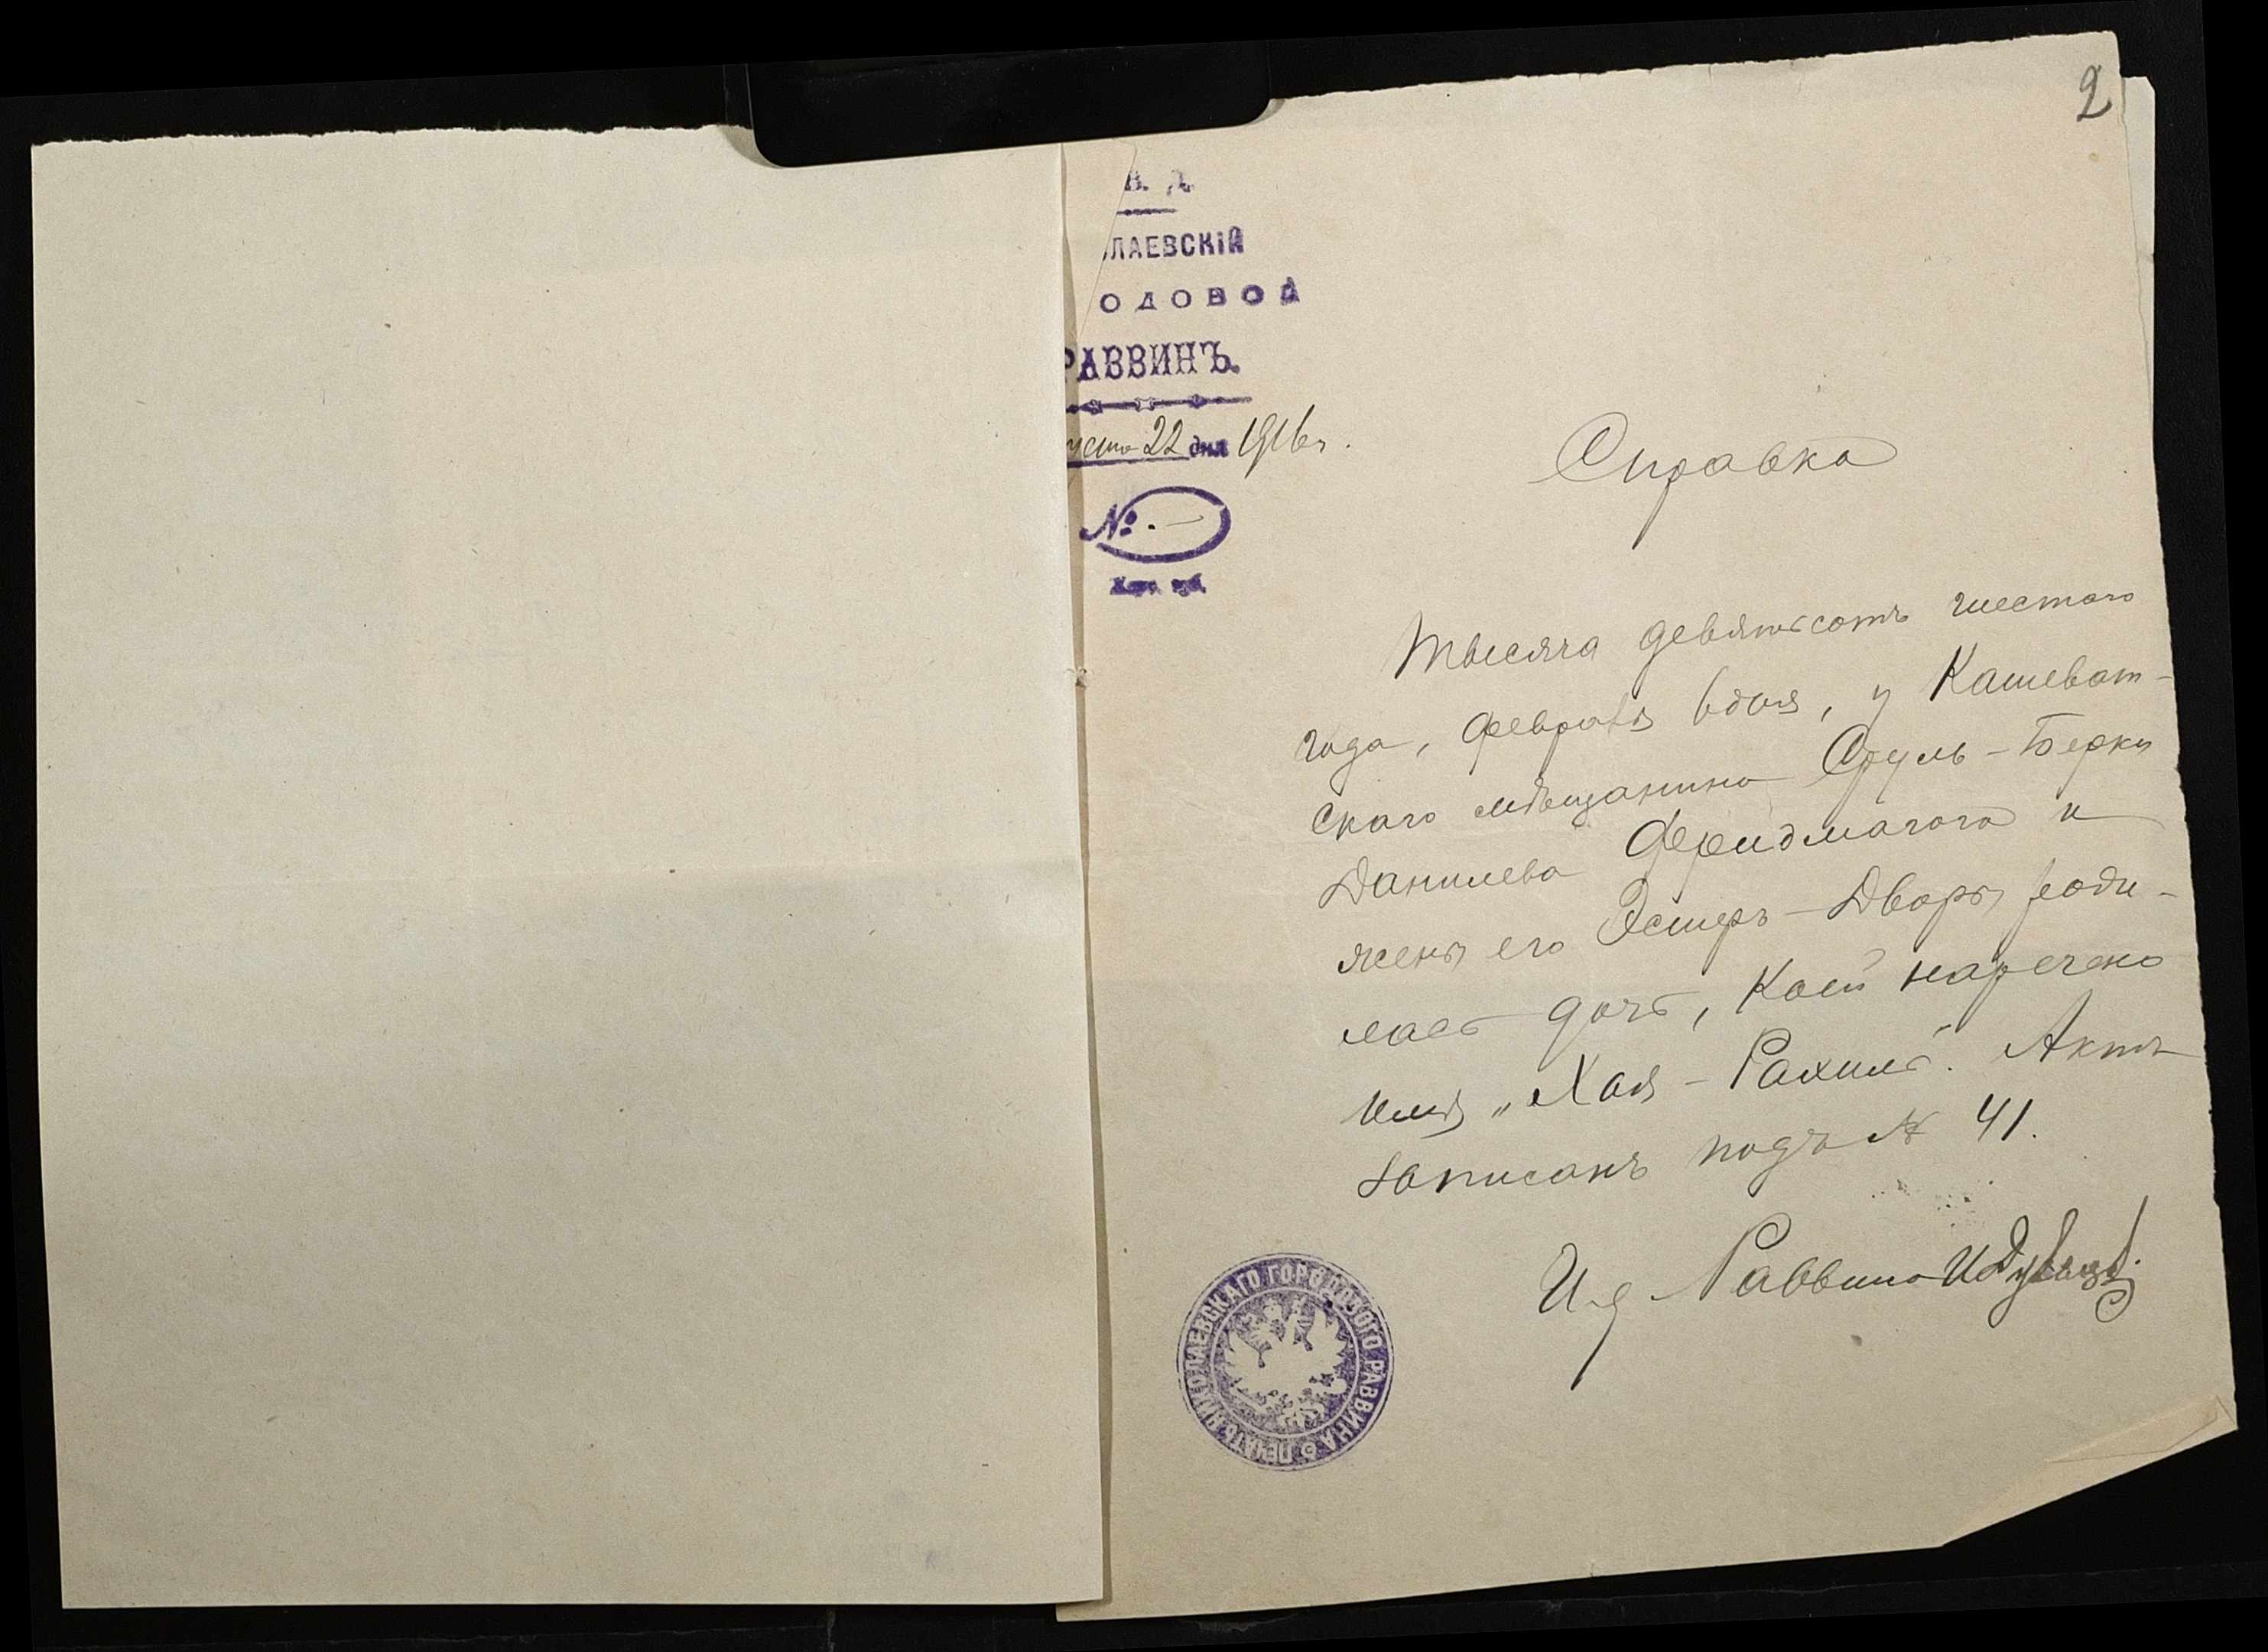 2
В. Д.
ЛАЕВСКІЙ
ОДОВОЙ
РАВВИНЪ.
уста 22 дня 1916 г.
№. —
Справка
Тысяча девятьсотъ шестого
года, февраля 6 дня, у Кашеват-
скаго мѣщанина Сруль-Берки
Данилева Фридмагого и
жены его Эстеръ-Дворы роди-
лась дочь, коей наречено
имя „Хая-Рахиль". Актъ
записанъ подъ № 41.
И д Раввина
ПЕЧАТЬ НИКОЛАЕВСКАГО ГОРОДОВОГО РАВВИНА